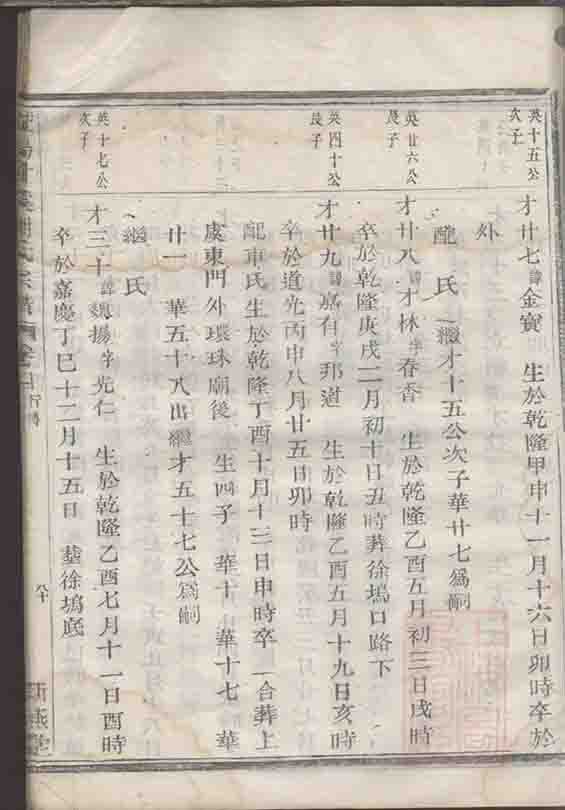 英十五公
次子
才廿七諱金寶 生於乾隆甲申十一月十六日卯時卒於
外
配 氏 繼才十五公次子華廿七爲嗣
英廿六公
長子
才廿八諱才林字春香 生於乾隆乙酉五月初三日戌時
卒於乾隆庚戌二月初十日丑時葬徐塢口路下
英四十公
長子
才廿九諱嘉有字邦道 生於乾隆乙酉五月十九日亥時
卒於道光丙申八月廿五日卯時
配車氏生於乾隆丁酉十月十三日申時卒 合葬上
虞東門外環珠廟後 生四子 華十 華十七 華
廿一 華五十八出繼才五十七公爲嗣
英十七公
次子
繼 氏
才三十諱魏揚字光仁 生於乾隆乙酉七月十一日酉時
卒於嘉慶丁巳十二月十五日 葬徐塢底
氏宗譜
八十